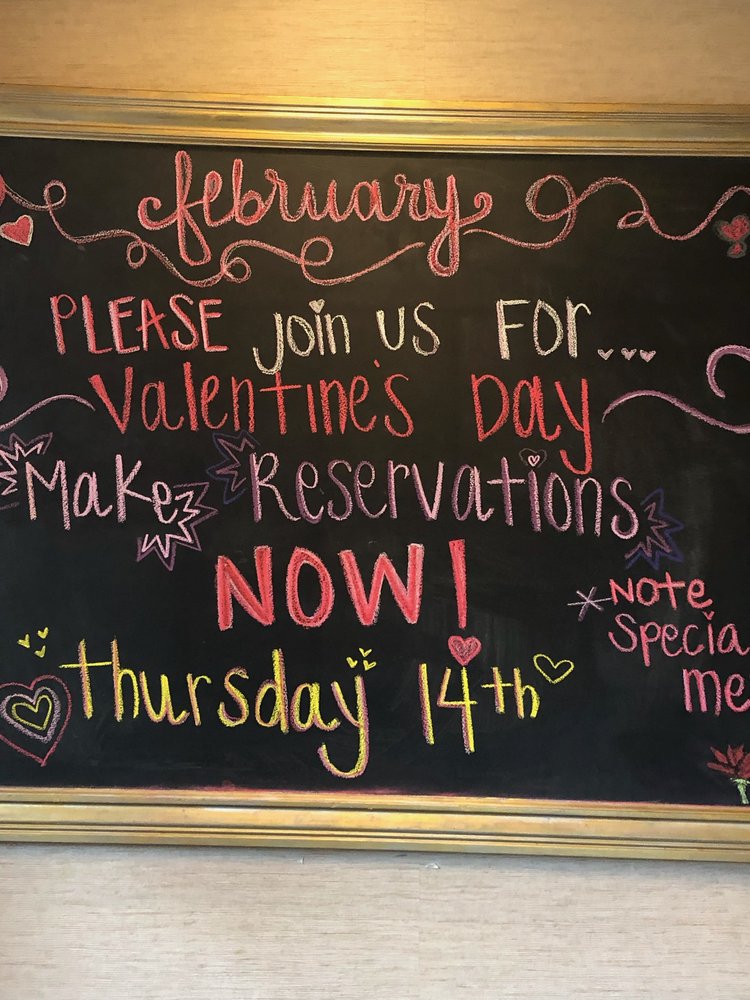 february
PLEASE join us FOR...
Valentine's Day
Make Reservations
NOW!
Thursday 14th
*NOTE